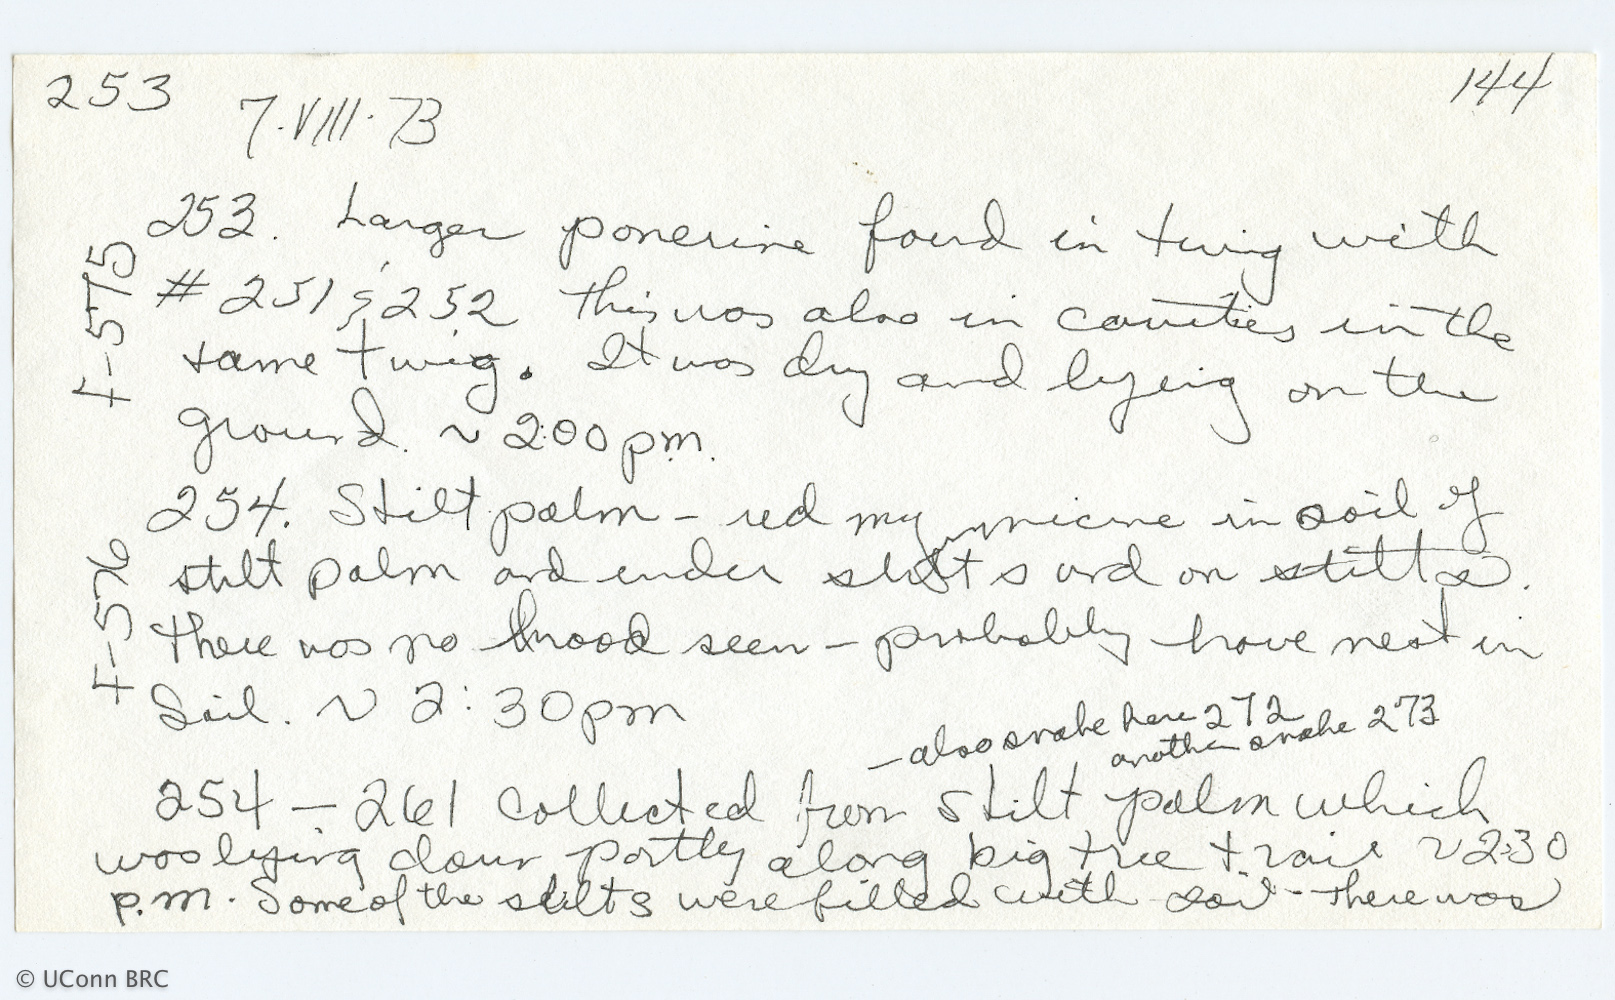 253
144
7.VIII.73
253. Larger ponerine found in twig with
# 251 & 252 This was also in cavities in the
same twig. It was dry and lying on the
ground. ~ 2:00 pm.
F-575
254. Stilt palm - red myrmicine in soil of
stilt palm and under stilts and on stilts.
There was no brood seen - probably have nest in
Soil. ~ 2:30pm
F-576
- also snake here 272
another snake 273
254 - 261 Collected from stilt palm which
was lying down partly along big tree trail ~ 2:30
p.m. Some of the stilts were filled with soil - There was
© UConn BRC